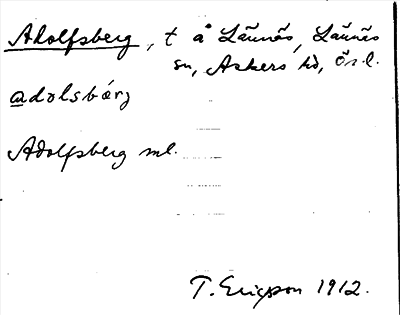 Adolfsberg, t å Lännäs, Lännäs
sn, Askers hd, Ör. l.
adolsbárj
Adolfsberg ml.
T. Ericsson 1912.